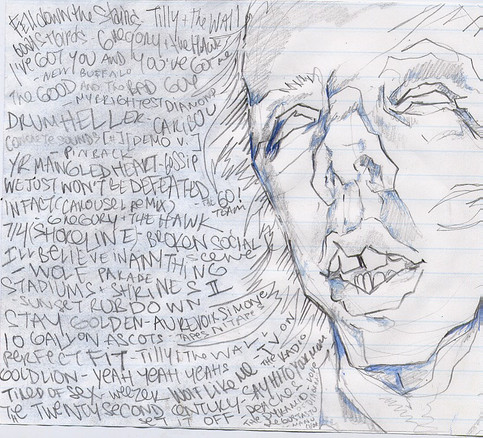 FELL DOWN THE STAIRS TILLY + THE WALL
BOATS + BIRDS - GREGORY + THE HAWK
I'VE GOT YOU AND YOU'VE GOT ME
- NEW BUFFALO
THE GOOD AND THE BAD GUY
MY BRIGHTEST DIAMOND
DRUMHELLER - CARIBOU
CONCRETE SOUNDS [+] (DEMO V.)
PINBACK
YR MANGLED HEART - GOSSIP
WE JUST WON'T BE DEFEATED
THE GO! TEAM
IN FACT (CAROUSEL REMIX)
- GREGORY + THE HAWK
7/4 (SHORELINE) - BROKEN SOCIAL SCENE
I'LL BELIEVE IN ANYTHING
- WOLF PARADE
STADIUMS + SHRINES II
- SUNSET RUBDOWN
STAY GOLDEN - AU REVOIR SIMONE
10 GALLON ASCOTS - TAPES N TAPES
PERFECT FIT - TILLY + THE WALL
GOLD LION - YEAH YEAH YEAHS
TIRED OF SEX - WEEZER
WOLF LIKE ME - TV ON THE RADIO
THE TWENTY SECOND CENTURY
SET IT OFF!
SAY HI TO YOUR MOM